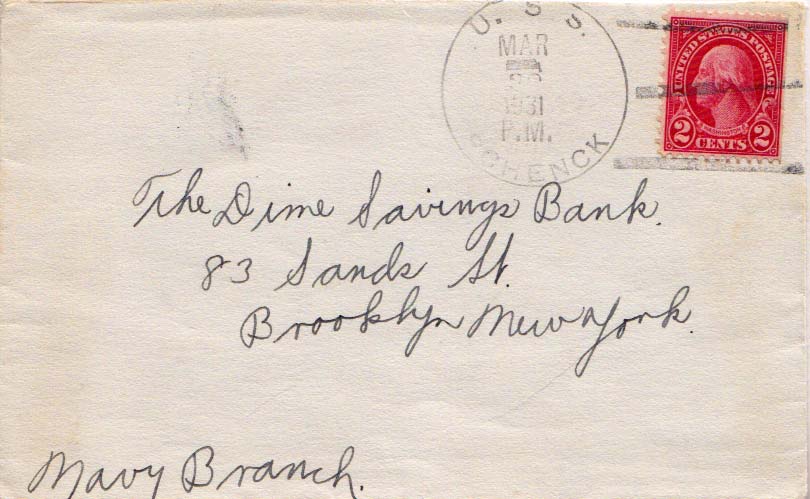 U. S. S.
MAR
26
1931
P.M.
SCHENCK
UNITED STATES POSTAGE
WASHINGTON
2 CENTS 2
The Dime Savings Bank.
83 Sands St.
Brooklyn New York.
Navy Branch.